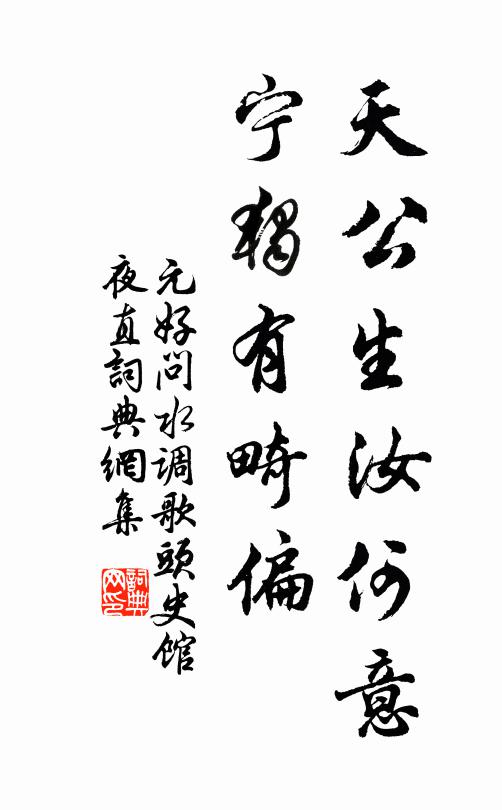 天公生汝何意
宁独有畸偏
元好问水调歌頭史馆
夜直詞典網集
詞典网印